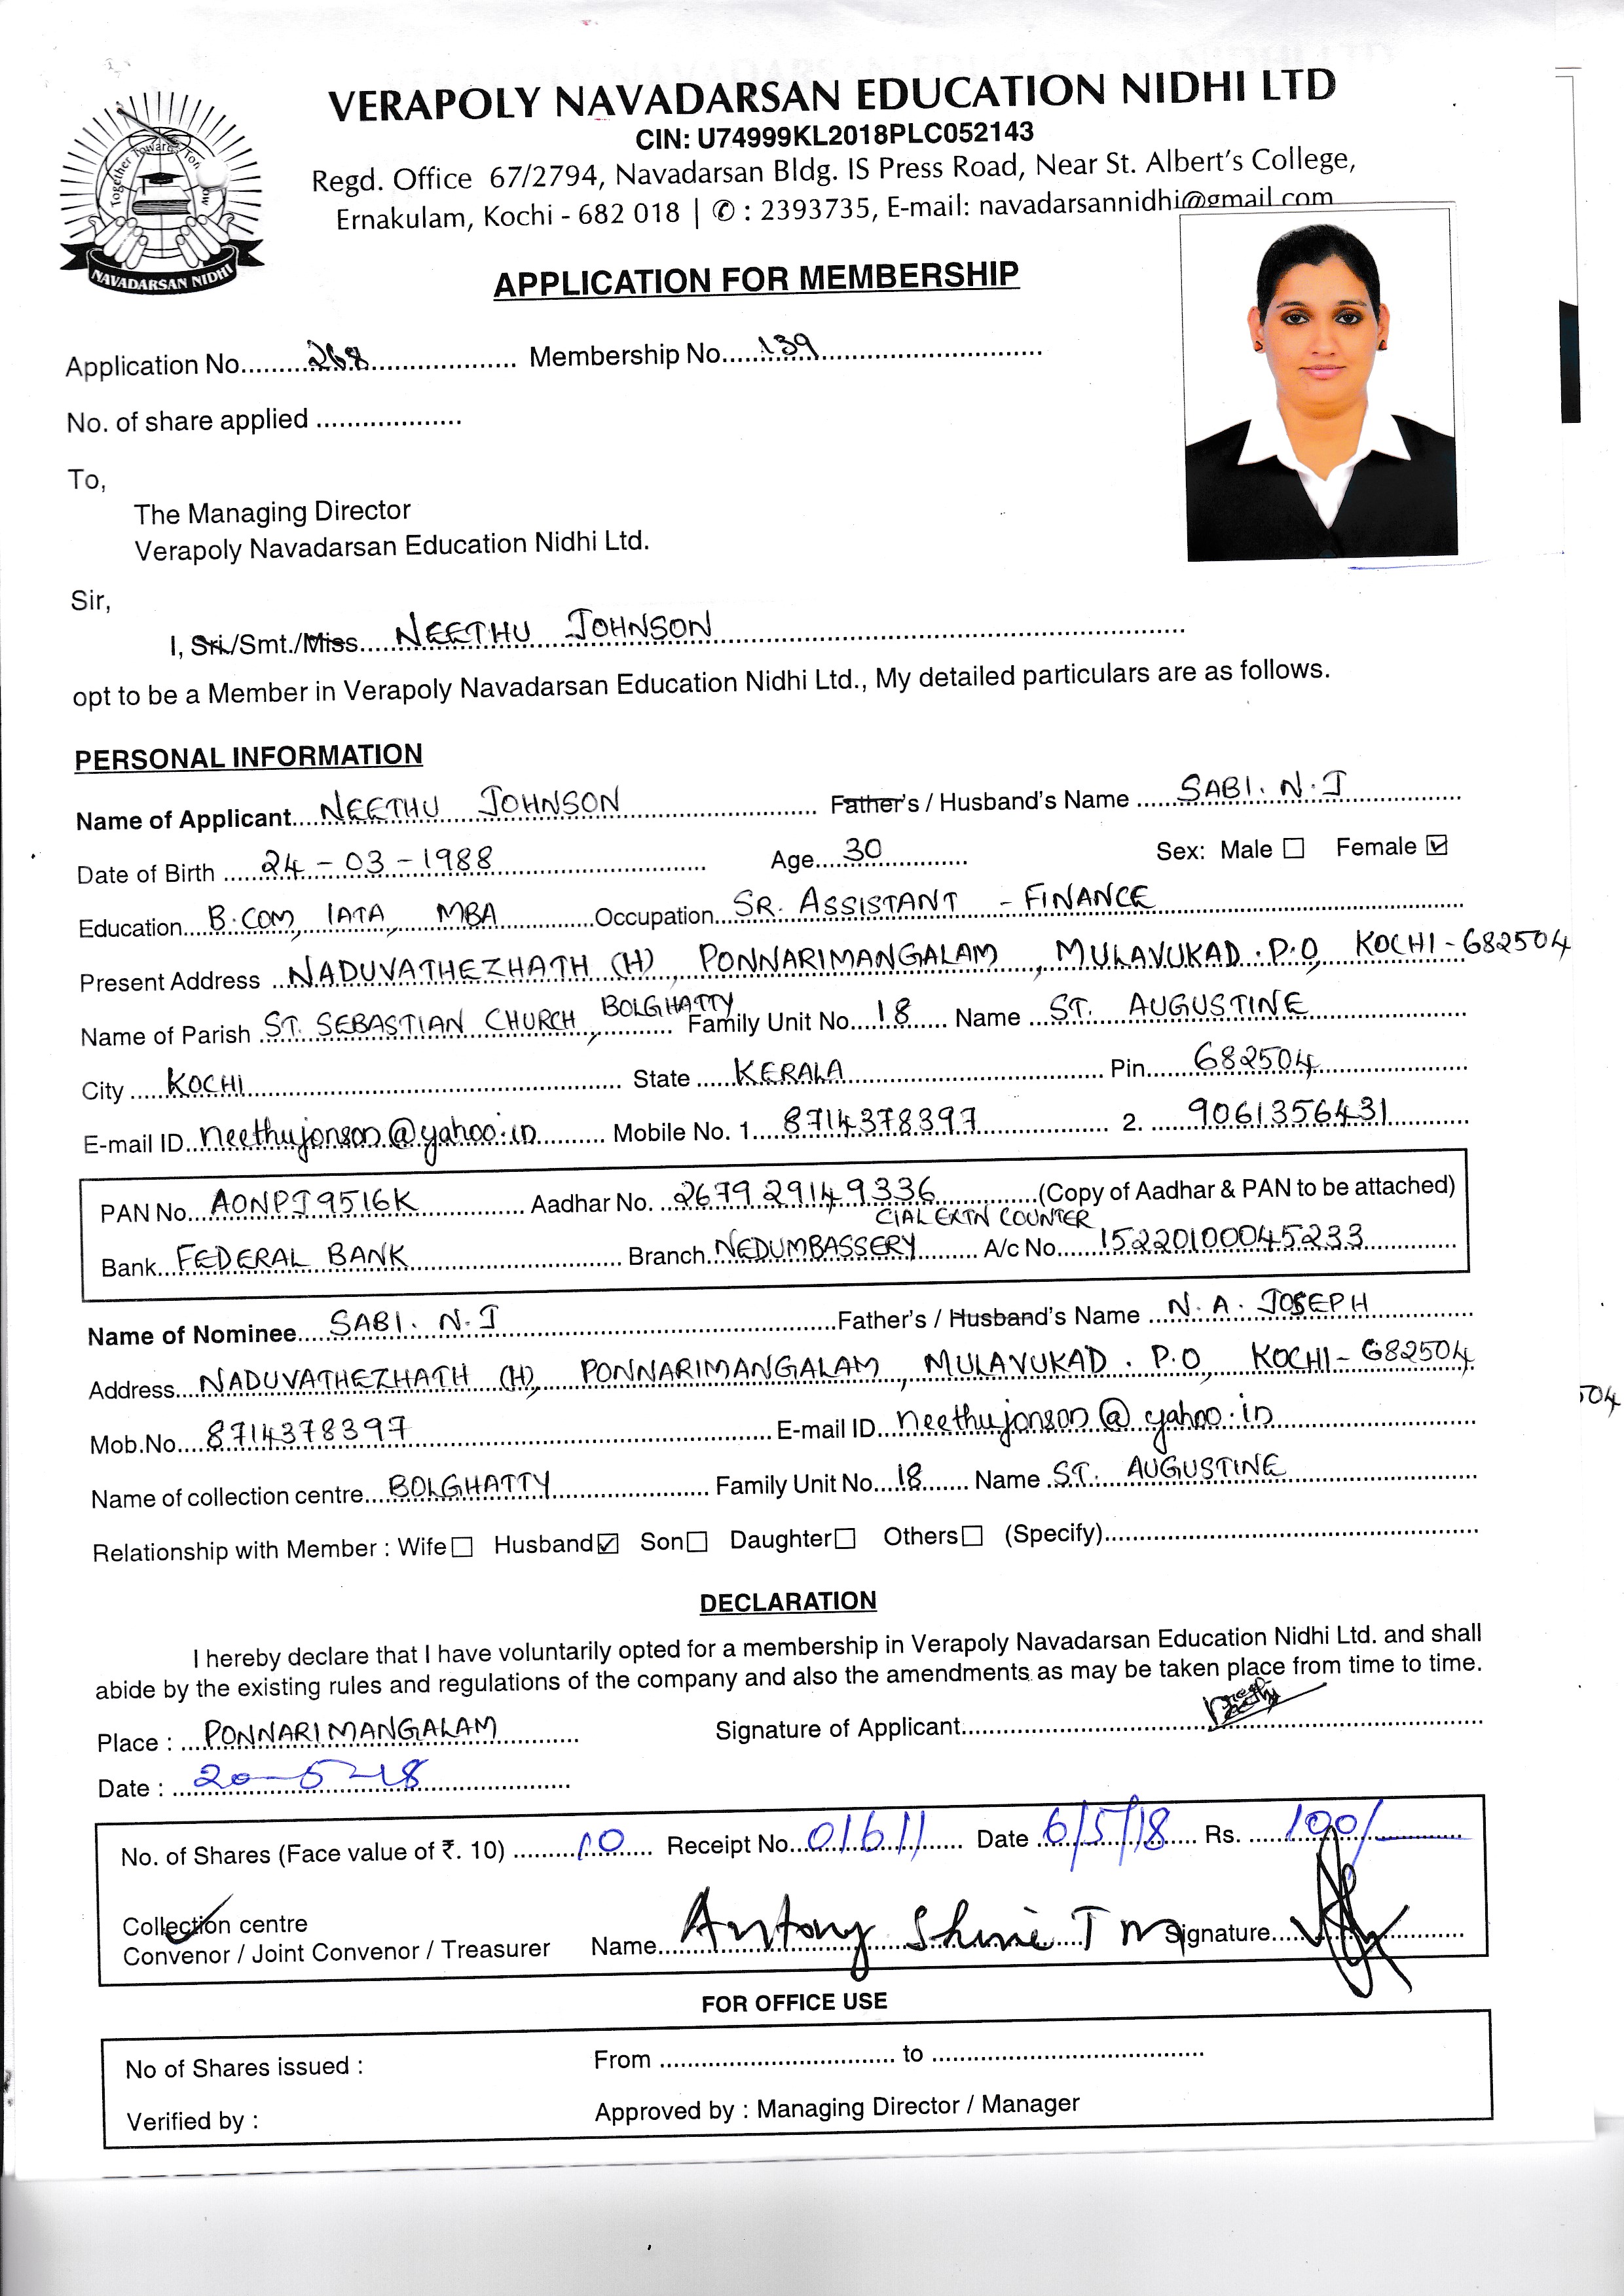 VERAPOLY NAVADARSAN EDUCATION NIDHI LTD
CIN: U74999KL2018PLC052143
Regd. Office 67/2794, Navadarsan Bldg. IS Press Road, Near St. Albert's College,
Ernakulam, Kochi - 682 018 | ✆ : 2393735, E-mail: navadarsannidhi@gmail.com
Together Towards
NAVADARSAN NIDHI
APPLICATION FOR MEMBERSHIP
Application No. 268 Membership No. 139
No. of share applied
To,
The Managing Director
Verapoly Navadarsan Education Nidhi Ltd.
Sir,
I, Sri./Smt./Miss. NEETHU JOHNSON
opt to be a Member in Verapoly Navadarsan Education Nidhi Ltd., My detailed particulars are as follows.
PERSONAL INFORMATION
Name of Applicant NEETHU JOHNSON Father's / Husband's Name SABI. N. J
Date of Birth 24-03-1988 Age 30 Sex: Male ☐ Female ☑
Education B.COM, IATA, MBA Occupation SR. ASSISTANT - FINANCE
Present Address NADUVATHEZHATH (H), PONNARIMANGALAM, MULAVUKAD. P.O, KOCHI-682504
Name of Parish ST. SEBASTIAN CHURCH, BOLGHATTY Family Unit No. 18 Name ST. AUGUSTINE
City KOCHI State KERALA Pin 682504
E-mail ID neethujonson@yahoo.in Mobile No. 1. 8714378397 2. 9061356431
PAN No. AONPJ9516K Aadhar No. 2679 2914 9336 (Copy of Aadhar & PAN to be attached)
CIAL EXTN COUNTER
Bank FEDERAL BANK Branch NEDUMBASSERY A/c No. 15220100045233
Name of Nominee SABI. N. J Father's / Husband's Name N. A. JOSEPH
Address NADUVATHEZHATH (H), PONNARIMANGALAM, MULAVUKAD. P.O, KOCHI-682504
504
Mob.No. 8714378397 E-mail ID neethujonson@yahoo.in
Name of collection centre BOLGHATTY Family Unit No. 18 Name ST. AUGUSTINE
Relationship with Member : Wife ☐ Husband ☑ Son ☐ Daughter ☐ Others ☐ (Specify)
DECLARATION
I hereby declare that I have voluntarily opted for a membership in Verapoly Navadarsan Education Nidhi Ltd. and shall
abide by the existing rules and regulations of the company and also the amendments as may be taken place from time to time.
Place : PONNARIMANGALAM Signature of Applicant
Date : 20-5-18
No. of Shares (Face value of ₹. 10) 10 Receipt No. 01611 Date 6/5/18 Rs. 100/
Collection centre
Convenor / Joint Convenor / Treasurer Name Antony Shine T M Signature
FOR OFFICE USE
No of Shares issued : From to
Verified by : Approved by : Managing Director / Manager